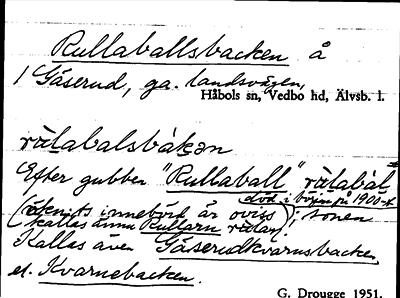 Rullaballsbacken å
Gåserud, ga. landsvägen,
Håbols sn, Vedbo hd, Älvsb. l.
ratabalsbåkən
Efter gubben "Rullaball" ratabal
död i början på 1900-t
(öknets innebörd är oviss), sonen
kallas ännu Rullarn
Kallas även Gåserudkvarnsbacken
el. Kvarnebacken.
G. Drougge 1951.